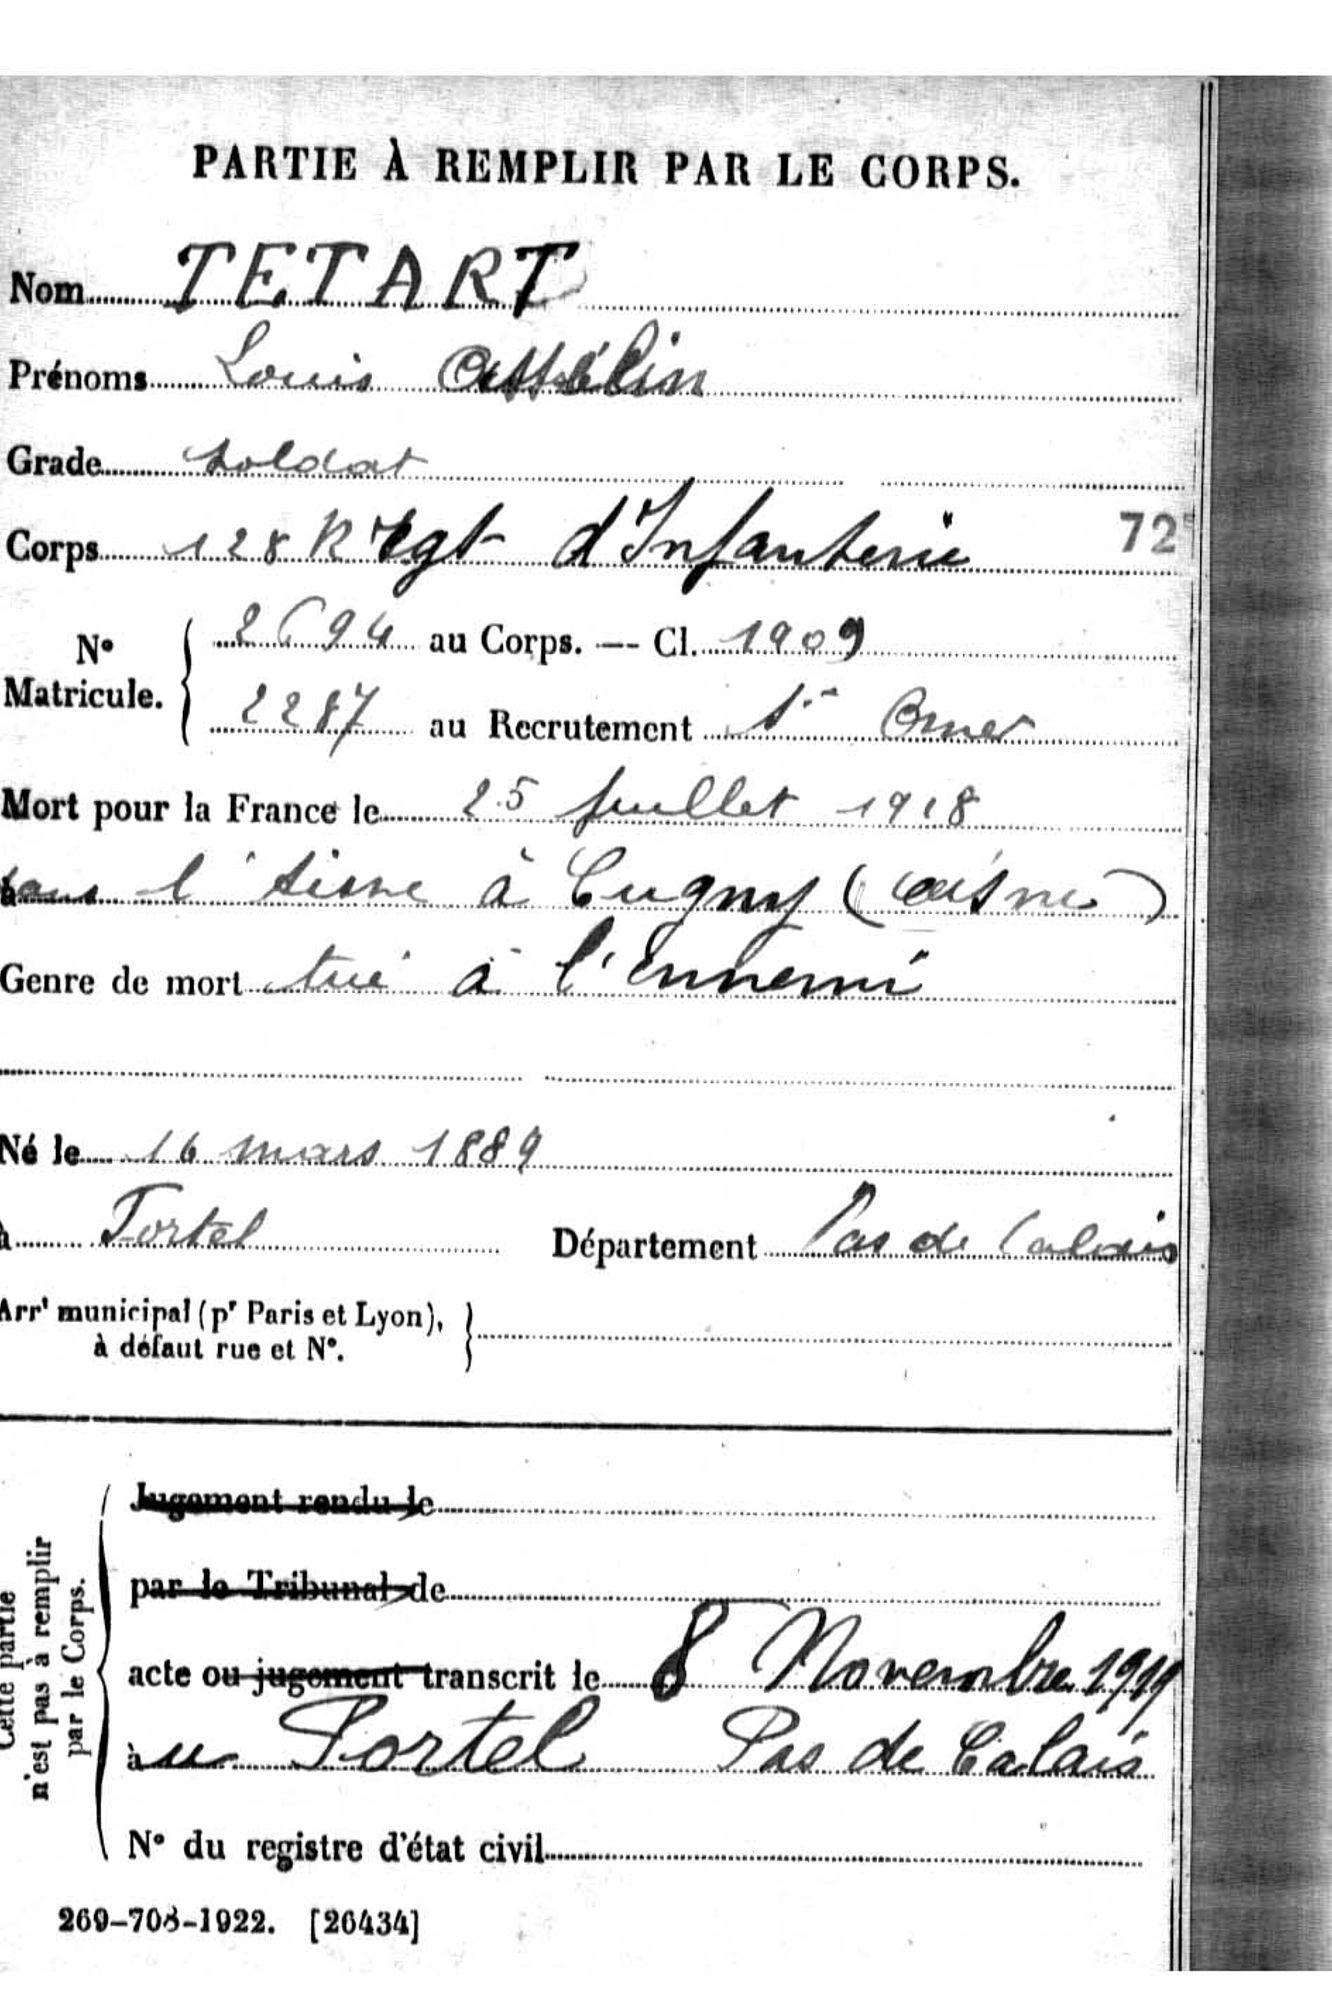 PARTIE À REMPLIR PAR LE CORPS.
Nom TETART
Prénoms Louis Assélin
Grade soldat
Corps 128 R Regt d'Infanterie 72
No Matricule. 2694 au Corps. — Cl. 1909
2287 au Recrutement St Omer
Mort pour la France le 25 juillet 1918
à l'aisne à Cugny (aisne)
Genre de mort tué à l'ennemi
Né le 16 mars 1889
à Fortel Département Pas de Calais
Arrt municipal (pr Paris et Lyon),
à défaut rue et No.
Cette partie
n'est pas à remplir
par le Corps.
Jugement rendu le
par le Tribunal de
acte ou jugement transcrit le 8 Novembre 1919
à Fortel Pas de Calais
No du registre d'état civil
269-708-1922. [26434]